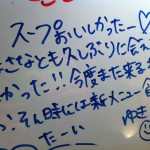 スープおいしかったー♡
さなとも久しぶりに会え
かった!!今度また来る
そん時には新メュー食
たーい ゆき